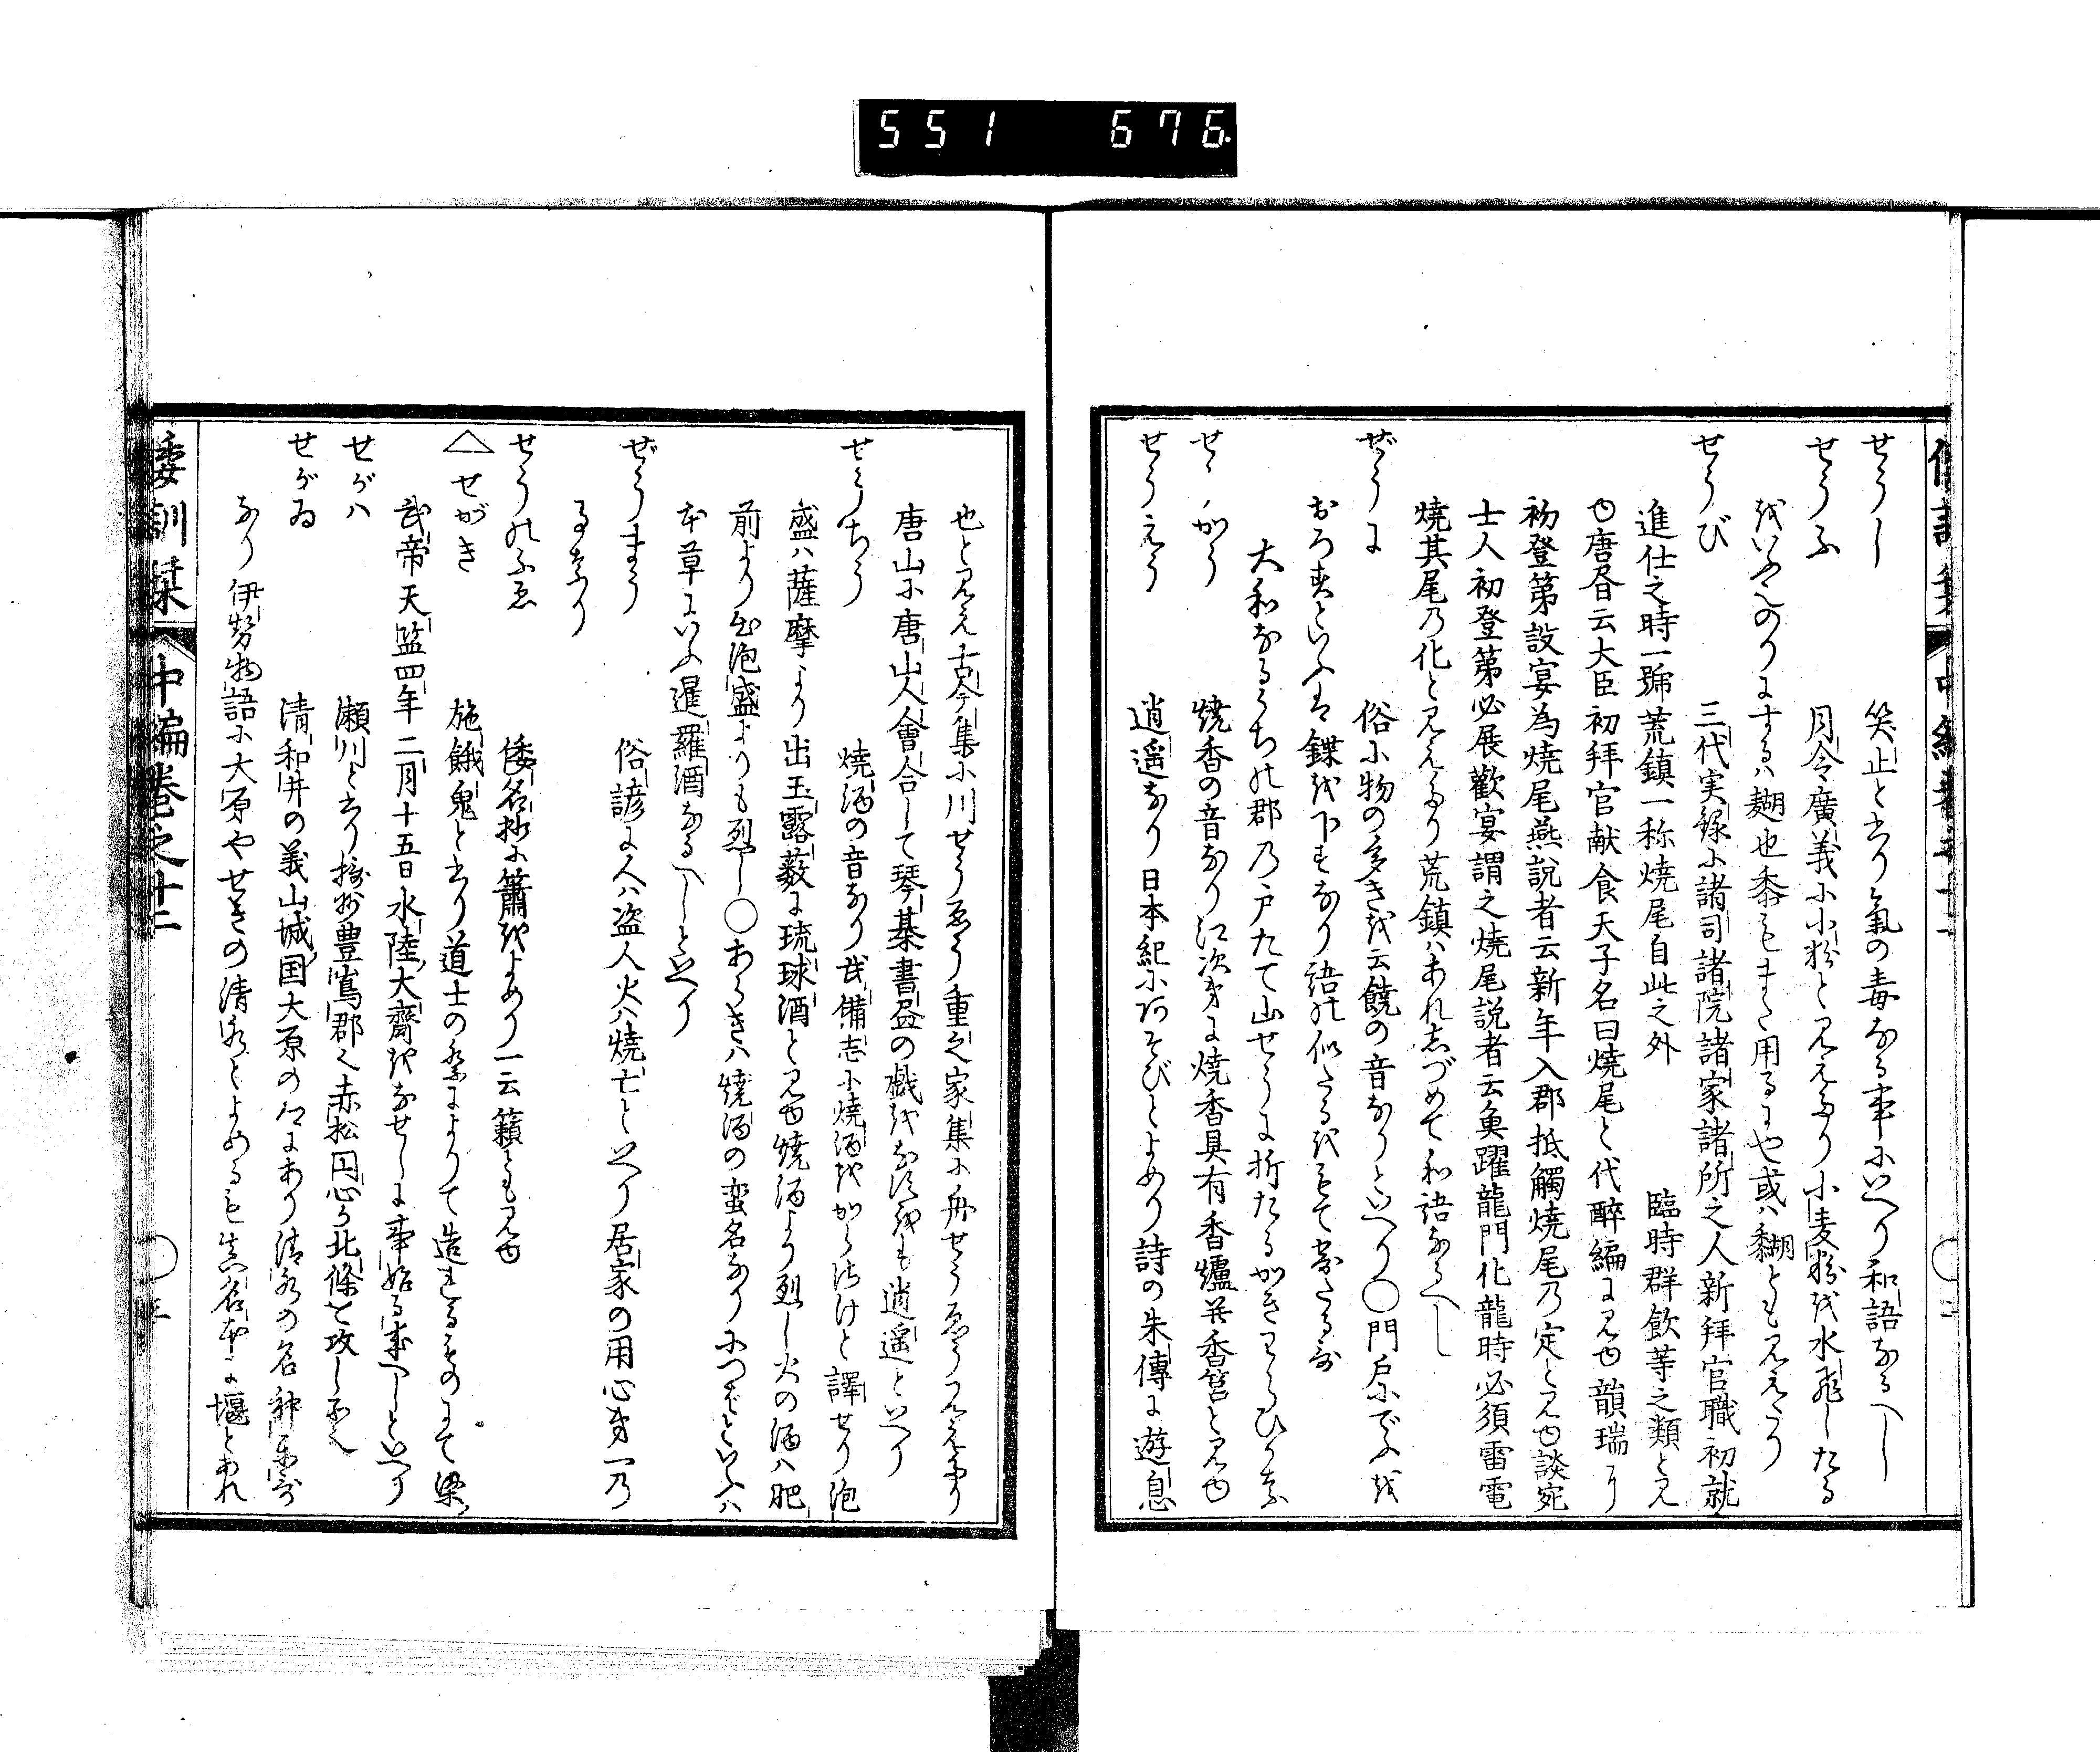 551 676
せうし 笑止と書り氣の毒なる事にいへり和語なるへし
せうふ 月令廣義に小粉と見えたり小麦粉を水飛したる
をいふ
のりにするハ糊也黍もまた用るにや或ハ糊とも見えたり
せうび 三代実録に諸司諸院諸家諸所之人新拜官職初就
進仕之時一号荒鎮一称焼尾自此之外 臨時群飲等之類と見
ゆ唐書云大臣初拜官献食天子名曰焼尾と代醉編に見ゆ韻瑞に
初登第設宴為焼尾燕説者云新年入郡抵觸焼尾乃定と見ゆ談宛
士人初登第必展歡宴謂之焼尾説者云魚躍龍門化龍時必須雷電
焼其尾乃化と見えたり荒鎮ハあれしづめて和語なるへし
ぜうに 俗に物の多きを云饒の音なりといへり〇門戸にでふを
おろすといふは鏁を下すなり語の似たるをもて
大和なるうちの郡乃戸たて山せうに折たるかきわらひかな
せゝかう 焼香の音なり江次第に焼香具有香爐并香筥と見ゆ
せうえう 逍遥なり日本紀にあそびとよめり詩の朱傳に遊息
也と見え古今集に川せうえう重之家集に舟せうえう見えたり
唐山に唐山人會合して琴棊書畫の戯をなすをも逍遥といへり
せうちう 焼酒の音なり武備志に焼酒をからさけと譯せり泡
盛ハ薩摩より出玉露叢に琉球酒と見ゆ焼酒より烈し火の酒ハ肥
前より出泡盛よりも烈し〇あらきハ焼酒の蛮名なりにつぱといふハ
本草にいふ暹羅酒なるへしといへり
ぜうまう 俗諺に人ハ盗人火ハ焼亡といへり居家の用心第一乃
事なり
せうのふゑ 倭名抄に簫をよめり一云籟とも見ゆ
△せがき 施餓鬼と書り道士の祭によりて造れるものにて梁
武帝天監四年二月十五日水陸大齋をなせしに事始る事へしといへり
せがハ 瀬川と書り摂州豊嶌郡也赤松円心か北條と攻し所也
せがゐ 清和井の義山城国大原の々にあり清水の名神楽歌
なり伊勢物語に大原やせきの清水とよめるも真名本に堰とあれ
倭訓栞 中編巻之十二 〇三